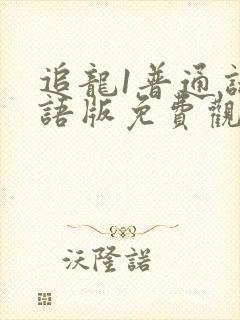 追龍1普通話
語版免費觀
沃隆諾